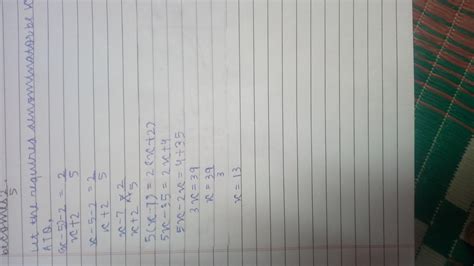 becomes 2/5.
Let the required denominator be x
ATQ,
(x-5)-2/x+2 = 2/5
x-5-2/x+2 = 2/5
x-7/x+2 = 2/5
5(x-7) = 2(x+2)
5x-35 = 2x+4
5x-2x = 4+35
3x = 39
x = 39/3
x = 13